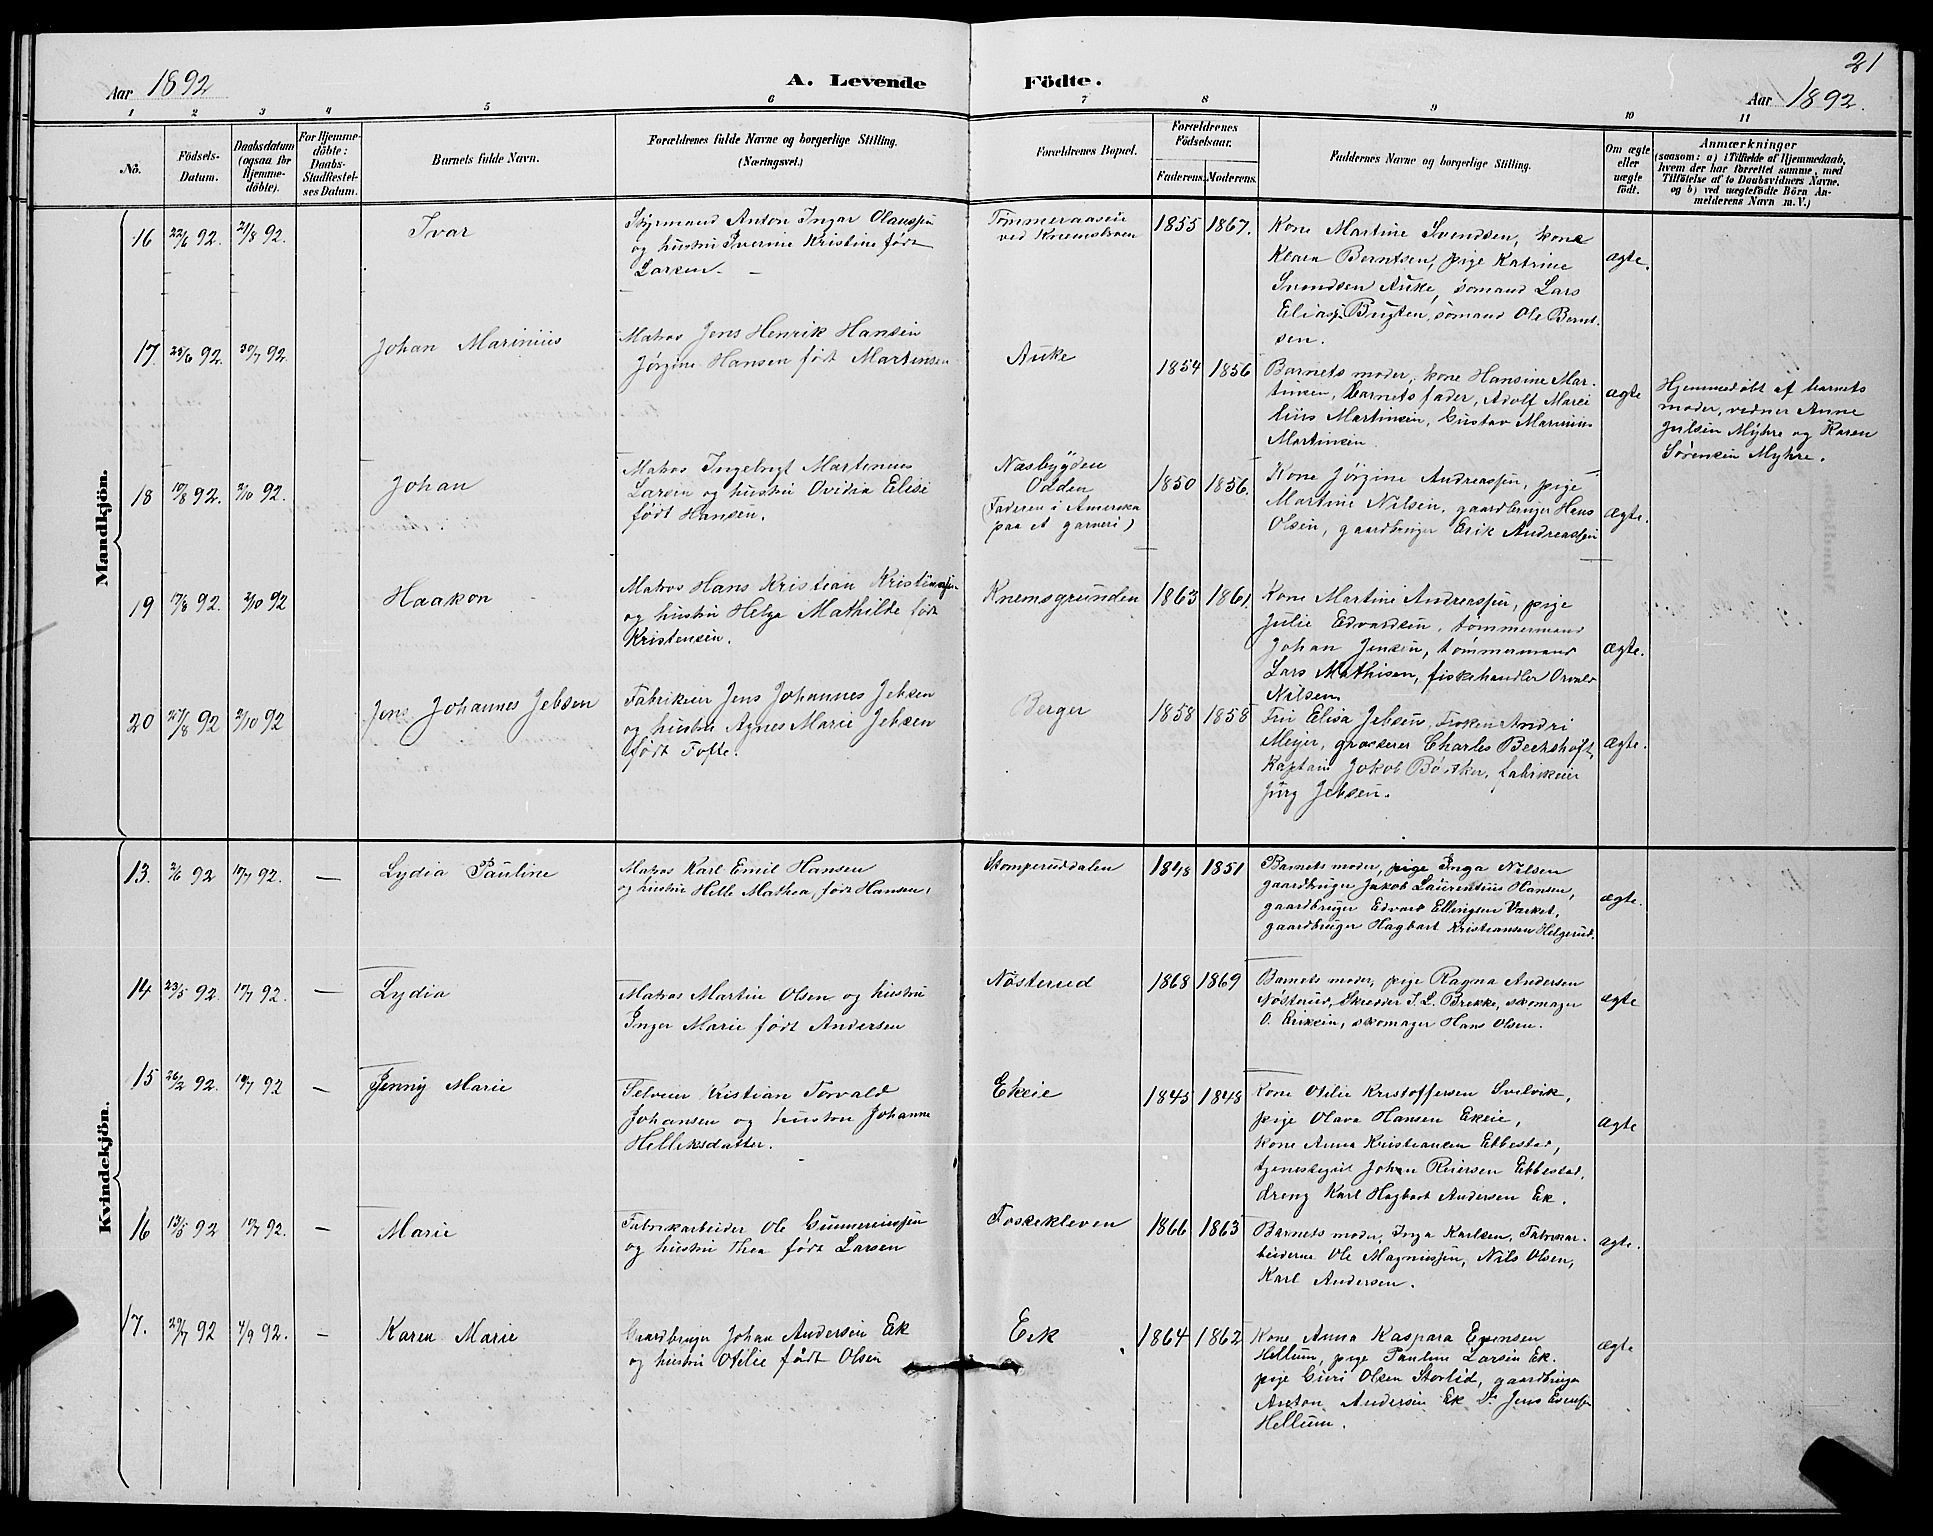 21
Aar 1892
A. Levende Födte.
Aar 1892.
1 2 3 4 5 6 7 8 9 10 11
No.
Födsels-Datum.
Daabsdatum (ogsaa for Hjemme-döbte).
For Hjemme-döbte: Daabs-Stadfæstel-ses Datum.
Barnets fulde Navn.
Forældrenes fulde Navne og borgerlige Stilling. (Næringsvei.)
Forældrenes Bopæl.
Forældrenes Födselsaar.
Faderens. Moderens.
Faddernes Navne og borgerlige Stilling.
Om ægte eller uægte født.
Anmærkninger
(saasom: a) i Tilfælde af Hjemmedaab, hvem der har forrettet samme, med Tilföielse af to Daabsvidners Navne. og b) ved uægtefödte Börn Anmelderens Navn m. V.)
Mandkjön.
16 22/6 92. 21/8 92.
Ivar
Styrmand Anton Ingar Olaussen
og hustru Iverine Kristine født
Larsen. –
Tømmeraasen
ved Knemsbroen
1855 1867.
Kone Martine Svendsen, kone
Klara Berntsen, pige Katrine
Svendsen Auke, sømand Lars
Eliass. Bugten, sømand Ole Bernt-
sen.
ægte.
17. 23/6 92. 30/7 92.
Johan Marinius
Matros Jens Henrik Hansen
Jørgine Hansen født Martinsen
Auke
1854 1856
Barnets moder, kone Hansine Mar-
tinsen, barnets fader, Adolf Mare
lius Martinsen, Gustav Marinius
Martinsen.
ægte
Hjemmedøbt af barnets
moder, vidner Anne
Julsen Myhre og Karen
Sørensen Myhre.
18 10/8 92. 2/10 92.
Johan
Matros Ingebrigt Martinius
Larsen og hustru Ovidia Elise
født Hansen.
Næsbygden
Odden
(Faderen i Amerika
paa et garneri)
1850 1856.
Kone Jørgine Andreassen, pige
Martine Nilsen, gaardbruger Hans
Olsen, gaardbruger Erik Andreassen
ægte.
19 17/8 92. 2/10 92
Haakon
Matros Hans Kristian Kristiansen
og hustru Helga Mathilde født
Kristensen.
Knemsgrunden
1863 1861.
Kone Martine Andreassen, pige
Julie Edvardsen, tømmermand
Johan Jensen, tømmermand
Lars Mathisen, fiskehandler Osvald
Nilsen
ægte.
20 27/8 92 2/10 92
Jens Johannes Jebsen
Fabrikeier Jens Johannes Jebsen
og hustru Agnes Marie Jebsen
født Tofte.
Berger
1858 1858
Fru Elisa Jebsen, Frøken Andri
Meyer, grosserer Charles Bechshoft,
Kaptein Jakob Bøtker, fabrikeier
Jürg Jebsen.
ægte.
Kvindekjön.
13. 2/6 92 17/7 92. —
Lydia Pauline
Matros Karl Emil Hansen
og hustru Helle Mathea, født Hansen.
Stomperuddalen
1848 1851
Barnets moder, pige Inga Nilsen
gaardbruger Jakob Laurentius Hansen,
gaardbruger Edvart Ellingsen Værket,
gaardbruger Hagbart Kristiansen Helgerud.
ægte.
14 23/5 92. 17/7 92. —
Lydia
Matros Martin Olsen og hustru
Inger Marie født Andersen
Nøsterud
1868 1869
Barnets moder, pige Ragna Andersen
Nøsterud, Skrædder I. L. Brekke, skomager
O. Eriksen, skomager Hans Olsen.
ægte
15 26/2 92. 10/7 92 —
Jenny Marie
Selveier Kristian Torvald
Johansen og hustru Johanne
Helliksdatter.
Ekeie
1845 1848
Kone Otilie Kristoffersen Svelvik,
pige Olava Hansen Ekeie,
kone Anna Kristiansen Ebbestad,
tjenestegut Johan Reiersen Ebbestad,
dreng Karl Hagbart Andersen Ek.
ægte
16 13/5 92 10/7 92. —
Marie
Fabrikarbeider Ole Gunneriussen
og hustru Thea født Larsen
Fossekleven
1866 1863
Barnets moder, Inga Karlsen, Fabrikar-
beiderne Ole Magnussen, Nils Olsen,
Karl Andersen.
ægte.
17. 29/7 92 4/9 92. —
Karen Marie
Gaardbruger Johan Andersen Ek
og hustru Otilie født Olsen
Eek
1864 1862
Kone Anna Kaspara Evensen
Hellum, pige Pauline Larsen Ek.
pige Guri Olsen Storlid, gaardbruger
Anton Andersen Ek Do Jens Evensen
Hellum.
ægte